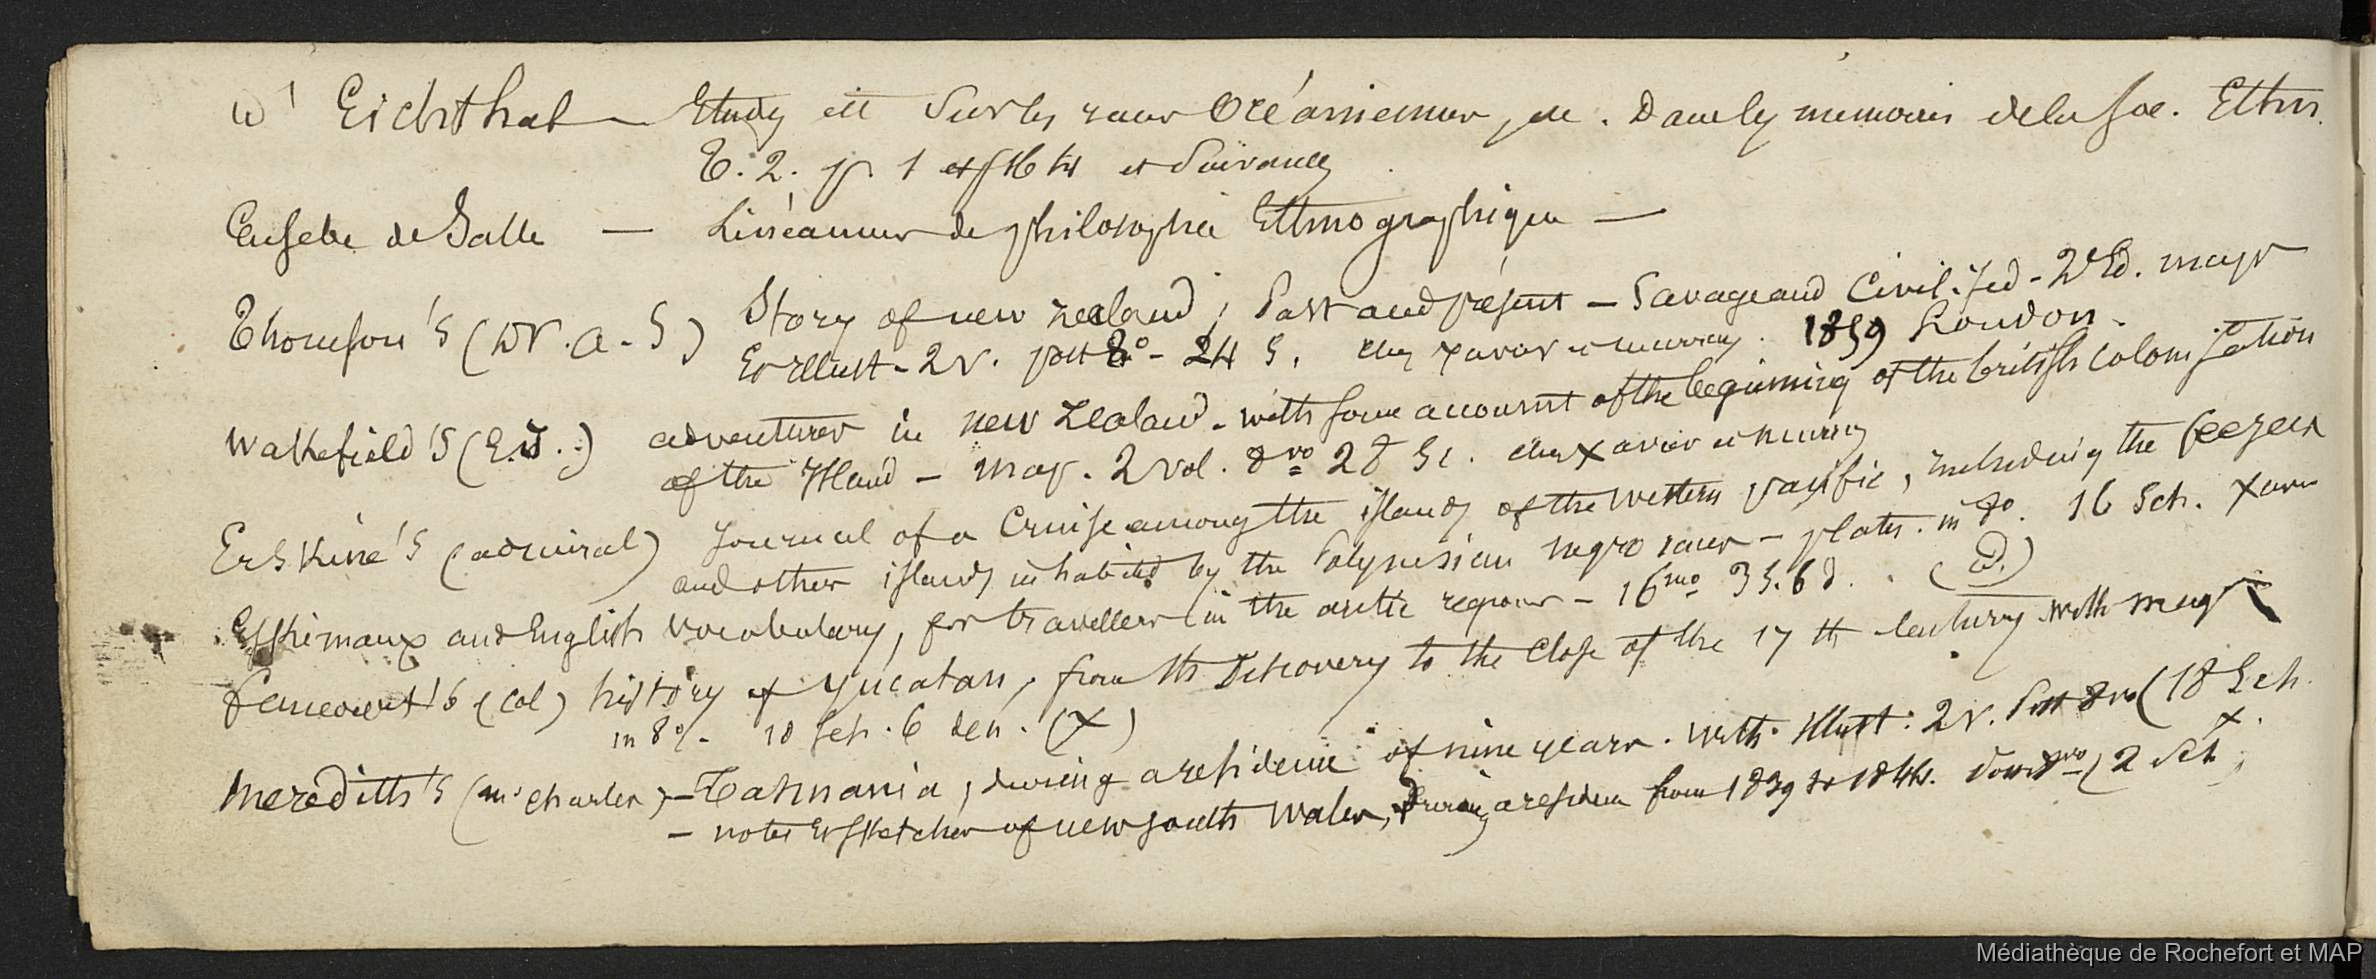 D' Eichthal — Etudes sur les races Océaniennes, etc. Dans les memoires de la Soc. Ethn.
T. 2. p. 1 et suivantes
Eusebe de Salle — Linéamens de philosophie Ethnographique —
Thomson's (Dr. A. S) Story of new Zealand; Past and présent — Savage and Civilised - 2e Ed. maps
Et Illust - 2 v. post 8° - 24 S. chez Xavier et Murray. 1859 London.
Wakefield's (E. J.) adventures in new Zealand - with some account of the beginning of the british Colonisation
of the Island — map. 2 vol. 8vo 28 Sc. chez Xavier et Murray
Erskine's (admiral) Journal of a Cruise among the islands of the Western pacific, including the feejees
and other islands inhabited by the Polynesian negro races — plates. in 8o. 16 Sch. Xavier
Esskimaux and English Vocabulary, for travellers in the arctic regions — 16mo 3 S. 6 d. (D.)
Fancourt's (Col) history of Yucatan, from its Discovery to the Close of the 17 th Century with map
in 8° - 10 Sch. 6 den. (X)
Meredith's (Ms Charles) — Tasmania, during a residence of nine years. With Illust. 2 v. Post 8vo (18 Sch.
— notes et sketches of new south Wales, During a residence from 1839 to 1844. Post 8vo (2 Sch. X.
Médiathèque de Rochefort et MAP